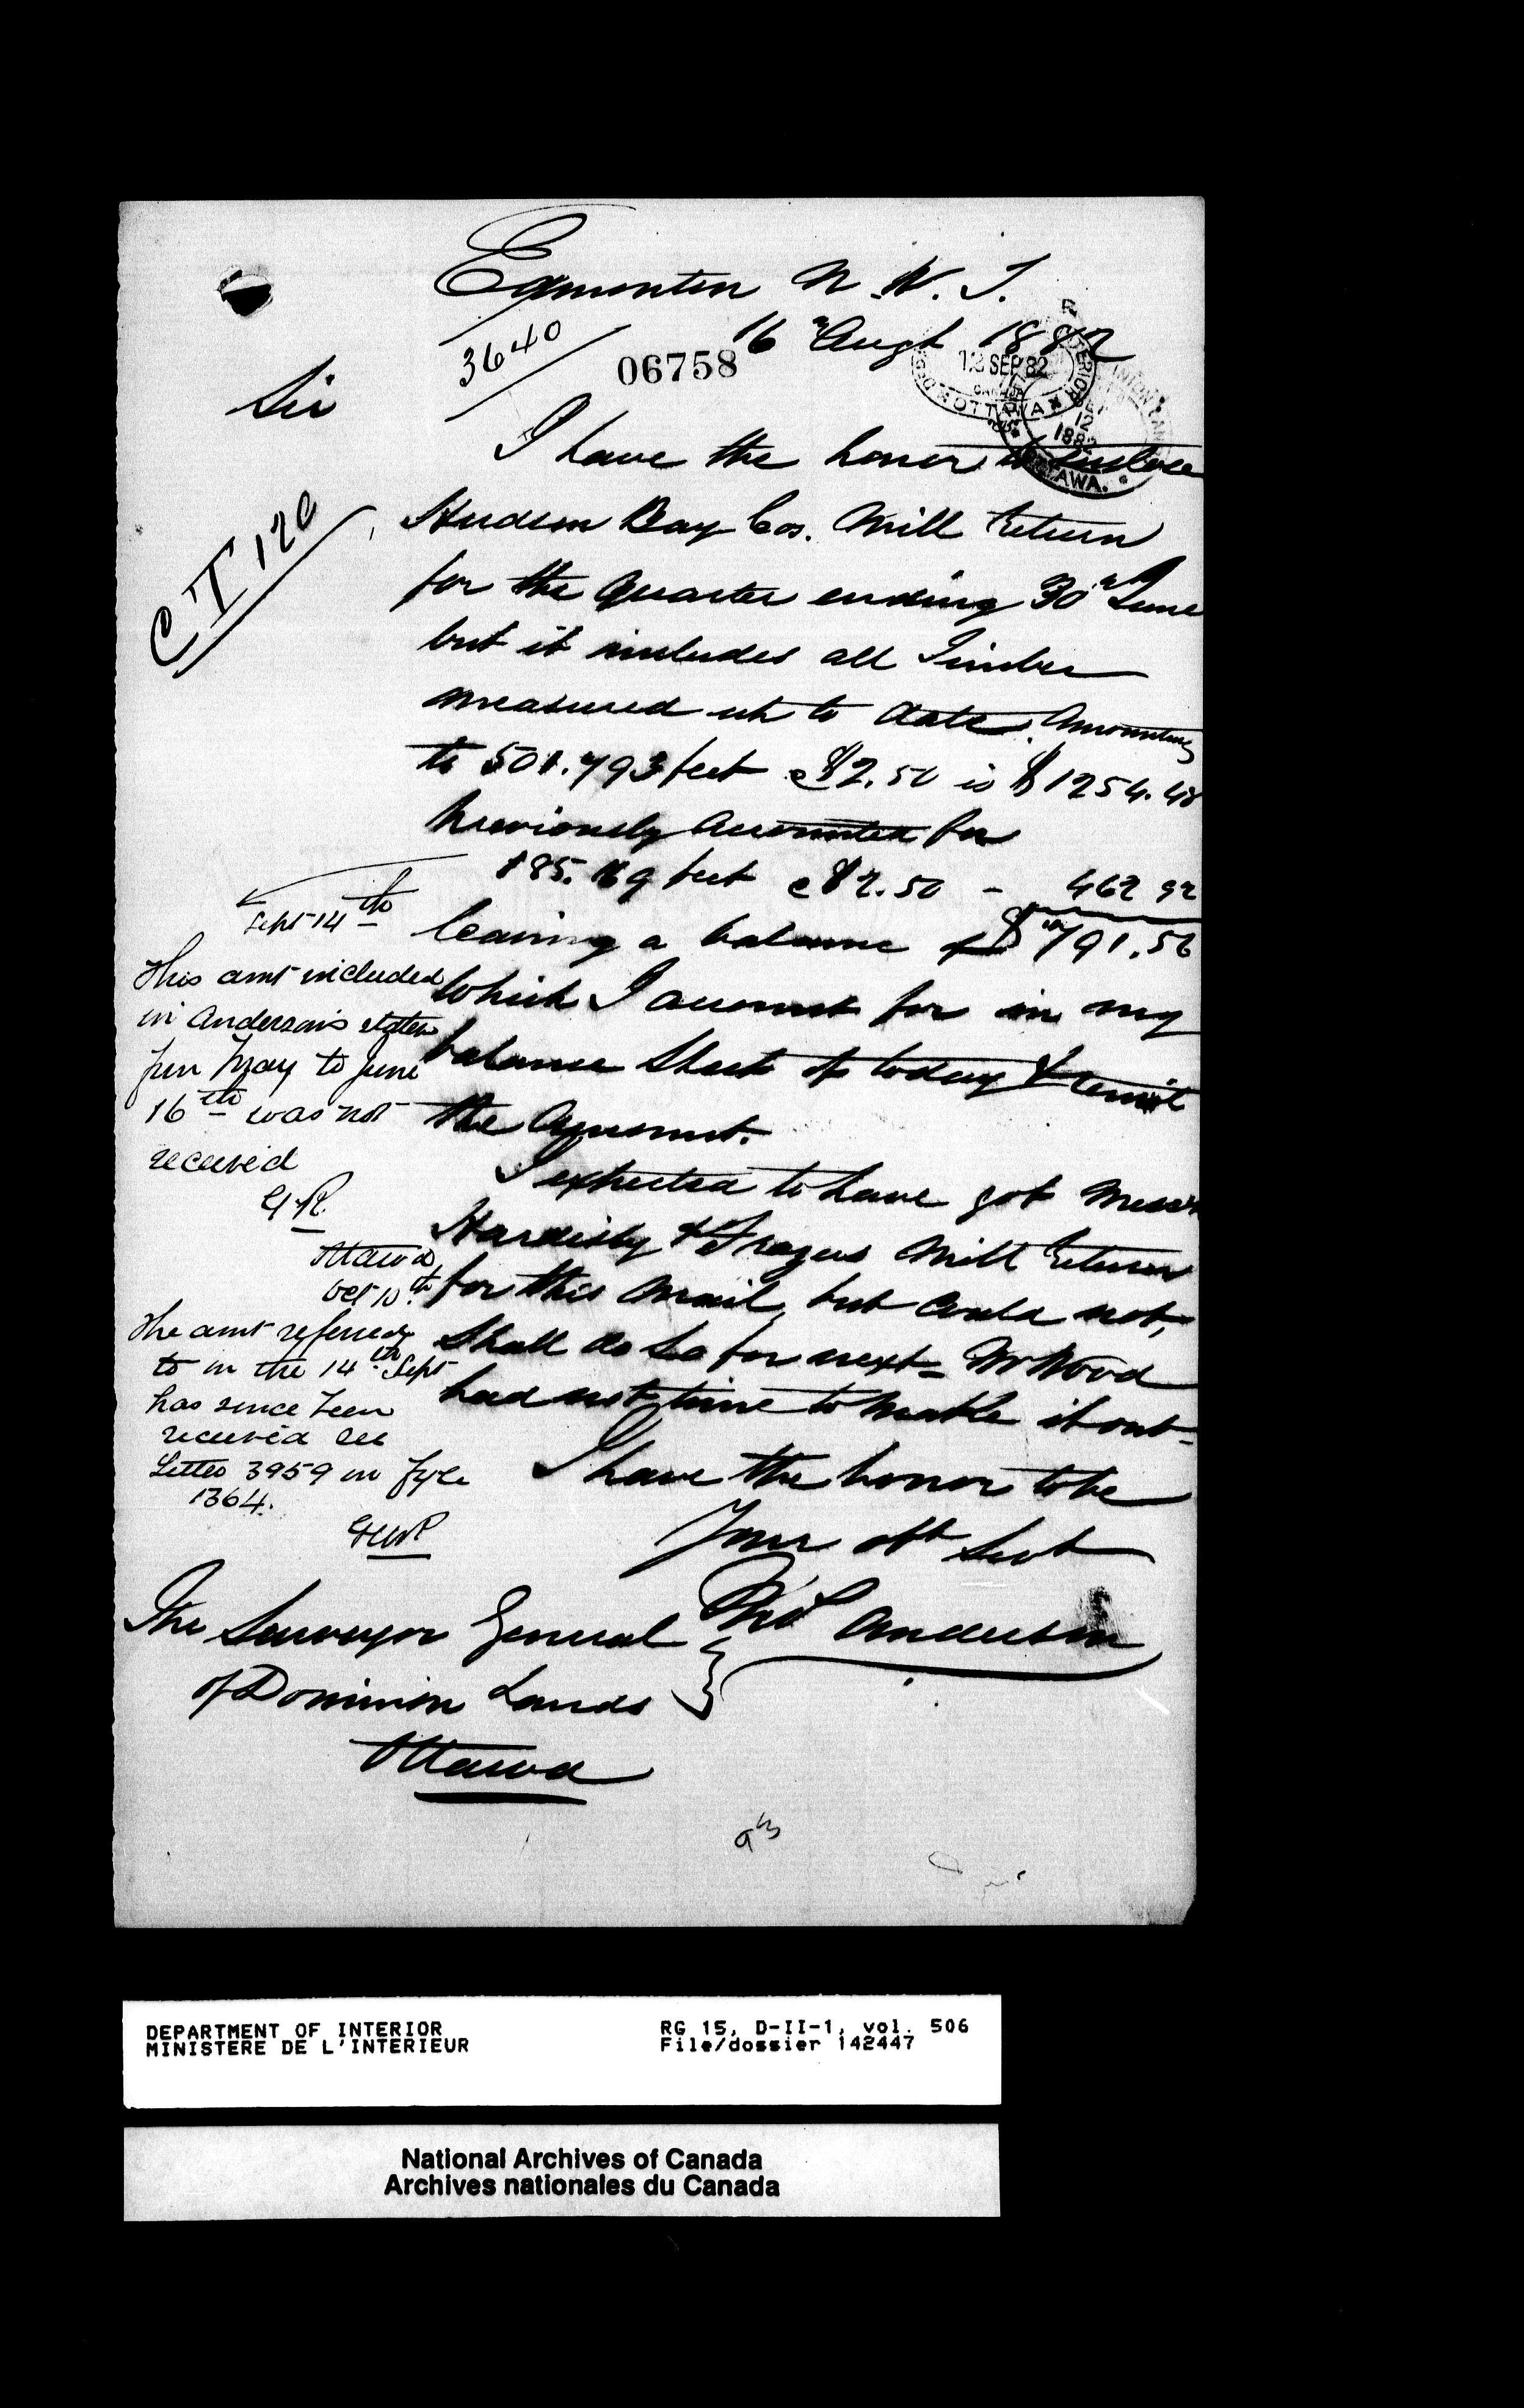 Edmonton N. W. T.
3640
06758
16th Augt 1882
12 SEP 82
OTTAWA
12
1882
OTTAWA.
Sir
I have the honor to inclose
CT 120
Hudson Bay Cos. Mill return
for the Quarter ending 30th June
but it includes all Timber
measured up to date. Amounting
to 501.793 feet @ $2.50 is $1254.48
Previously Accounted for
185.169 feet @ $2.50 - 462 92
leaving a balance of $791.56
which I account for in my
balance Sheet of today & remit
the Amount.
I expected to have got Messrs
Hardisty & Frazers Mill return
for this Mail, but Could not,
Shall do so for next - Mr Wood
had not time to make it out -
I have the honor to be
Your obt Servt
Thos Anderson
The Surveyor General
of Dominion Lands
Ottawa
Sept 14th
This amt included
in Anderson's
for May to June
16th was not
received
Ottawa
Oct 10th
The amt referred
to in the 14th Sept
has since been
received see
Letter 3959 on fyle
1364.
DEPARTMENT OF INTERIOR
MINISTERE DE L'INTERIEUR
RG 15, D-II-1, vol. 506
File/dossier 142447
National Archives of Canada
Archives nationales du Canada